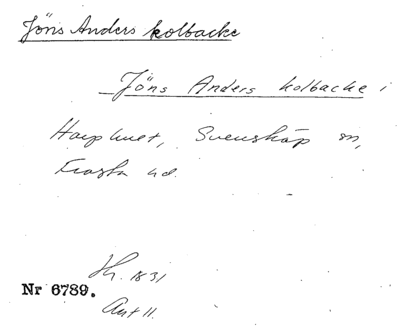 Jöns Anders kolbacke
Jöns Anders kolbacke i
Harphult, Svensköp sn,
Frosta hd.
Sk. 1831
Nr 6789.
Akt 11.